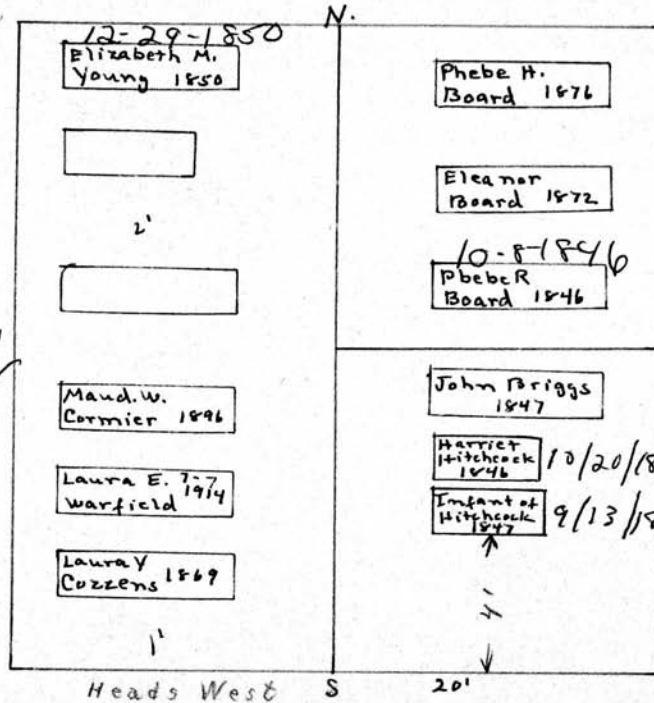 N.
12-29-1850
Elizabeth M.
Young 1850
2'
Maud. W.
Cormier 1896
Laura E. 7-7
Warfield 1914
Laura V
Cozzens 1869
1'
Heads West
Phebe H.
Board 1876
Eleanor
Board 1872
10-8-1846
Phebe R
Board 1846
John Briggs
1847
Harriet
Hitchcock
1846
10/20/18
Infant of
Hitchcock
1847
9/13/18
4'
S
20'